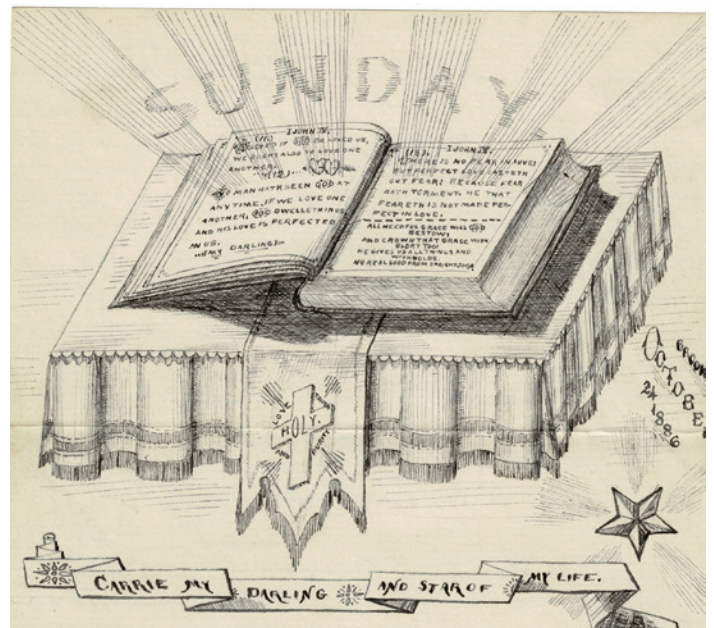 SUNDAY
I JOHN IV.
(11)
IF GOD SO LOVED US,
WE OUGHT ALSO TO LOVE ONE
ANOTHER.
(12) GOD
NO MAN HATH SEEN GOD AT
ANY TIME. IF WE LOVE ONE
ANOTHER, GOD DWELLETH
AND HIS LOVE IS PERFECTED
IN US.
MY DARLING
I JOHN IV.
(18)
THERE IS NO FEAR IN LOVE;
BUT PERFECT LOVE CASTETH
OUT FEAR: BECAUSE FEAR
HATH TORMENT. HE THAT
FEARETH IS NOT MADE PER-
FECT IN LOVE.
ALL NEEDFUL GRACE WILL GOD
BESTOW;
AND CROWN THAT GRACE WITH
GLORY TOO!
HE GIVES US ALL THINGS AND
WITHHOLDS
NO REAL GOOD FROM
LOVE
HOLY.
AND PURITY
OCTOBER
24 1886
CARRIE MY DARLING AND STAR OF MY LIFE.